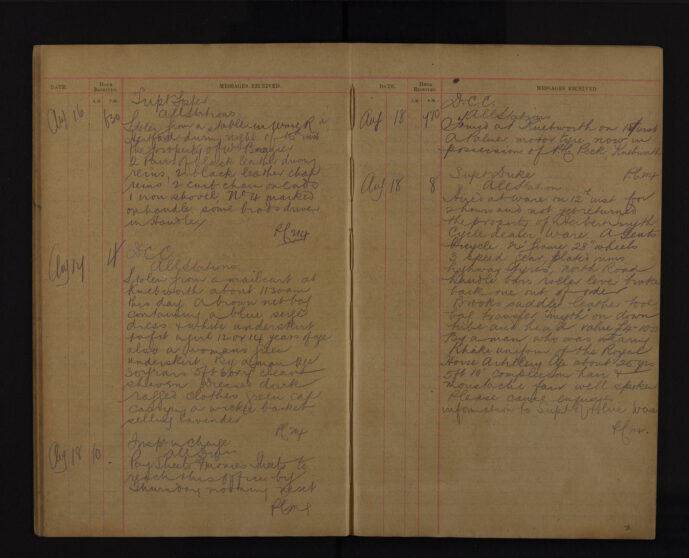 DATE.
HOUR RECEIVED.
A.M. P.M.
MESSAGES RECEIVED.
Aug 16
8.30
Supt Foster
All Stations
Stolen from a stable in Ware Rd
Hertford during night of 15th inst
the property of Wm
2 Pairs of black leather driving
reins, 2 black leather
reins 2 curb chain
1 iron shovel No 4 marked
on handle some brads driven
in Handle
Aug 17
4
D.C.C.
All Stations
Stolen from a mailcart at
Knebworth about 11.30 am
this day A brown net bag
containing a blue serge
dress & white underskirt
to fit a girl 12 or 14 years of age
also a womans green
underskirt By a man age
30 years 5ft 6 or 7 clean
shaven dark
ragged clothes green cap
carrying a wicker basket
selling lavender
Aug 18
10
Insp in Charge
All Stations
Pay Sheets & Monies Sheets to
reach this office by
Thursday morning next
DATE.
HOUR RECEIVED.
A.M. P.M.
MESSAGES RECEIVED.
Aug 18
D.C.C.
All Stations
at Knebworth on 18 inst
A Palmer motor tyre now in
possession of Peck Knebworth
Aug 18
8
Supt Duke
All Station
Hired at Ware on 12th inst for
2 hours and not yet returned
the property of Herbert Smyth
Cycle dealer Ware. A Gents
Bicycle frame 28" wheels
3 speed gear plated rims
highway tyres, North Road
handle bars roller lever brake
back one out of order
Brooks saddle leather tool
bag transfer "Smyth" on down
tube and head value £4-10-0
By a man who was wearing
Khaki uniform of the Royal
Horse Artillery age about 25 yrs
5ft 10 complexion hair &
moustache fair well spoken
Please cause enquiry
information to Supt Ware
2